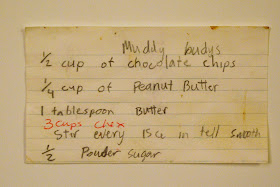 Muddy budys
1/2 cup of chocolate chips
1/4 cup of Peanut Butter
1 tablespoon Butter
3 cups chex
Stir every 15 in tell smooth
1/2 Powder sugar